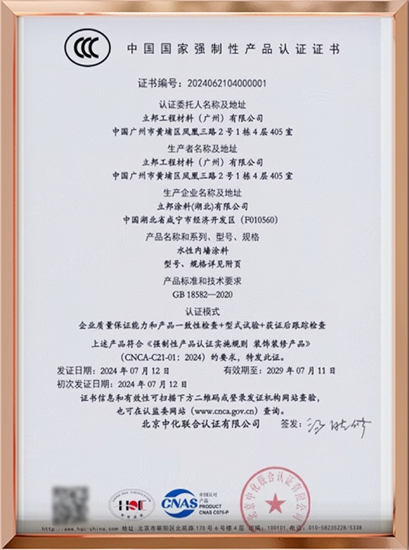 CCC
中国国家强制性产品认证证书
证书编号：2024062104000001
认证委托人名称及地址
立邦工程材料（广州）有限公司
中国广州市黄埔区凤凰三路2号1栋4层405室
生产者名称及地址
立邦工程材料（广州）有限公司
中国广州市黄埔区凤凰三路2号1栋4层405室
生产企业名称及地址
立邦涂料(湖北)有限公司
中国湖北省咸宁市经济开发区（F010560）
产品名称和系列、型号、规格
水性内墙涂料
型号、规格详见附页
产品标准和技术要求
GB 18582—2020
认证模式
企业质量保证能力和产品一致性检查+型式试验+获证后跟踪检查
上述产品符合《强制性产品认证实施规则 装饰装修产品》
（CNCA-C21-01：2024）的要求，特发此证。
发证日期：2024 年 07 月 12 日 有效期至：2029 年 07 月 11 日
初次发证日期：2024 年 07 月 12 日
证书信息和有效性可扫描下方二维码或登录发证机构网站查验，
也可在认监委网站（www.cnca.gov.cn）查询。
北京中化联合认证有限公司 签发：
HQC
CNAS
中国认可
产品
PRODUCT
CNAS C075-P
北京中化联合认证有限公司
www.hqc-china.com 地址：北京市朝阳区北苑路170号6号楼4层 邮编：100101 电话：010-58235228/5338